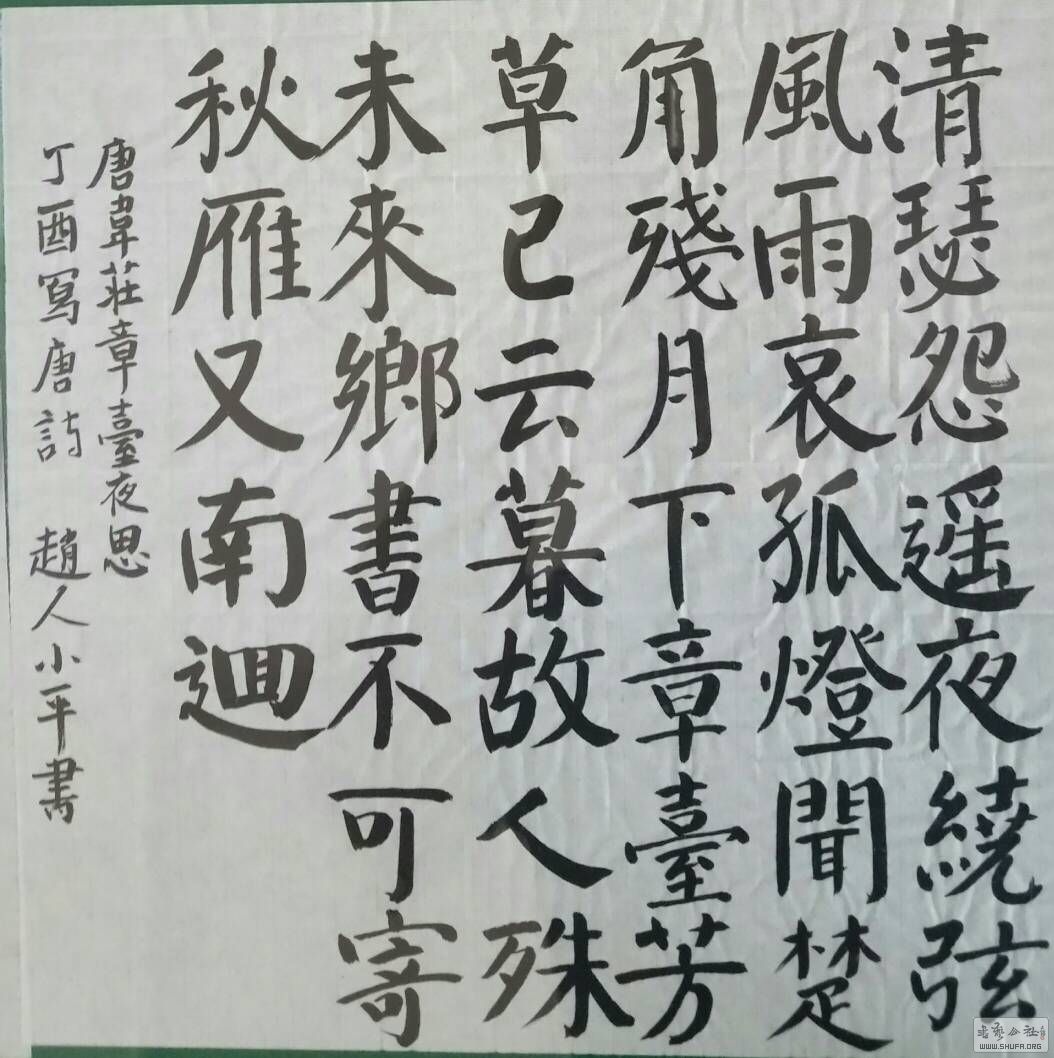 清瑟怨遥夜繞弦
風雨哀孤燈聞楚
角殘月下章臺芳
草已云暮故人殊
未來鄉書不可寄
秋雁又南迴
唐韋莊章臺夜思
丁酉寫唐詩 趙人小平書
WWW.SHUFA.ORG